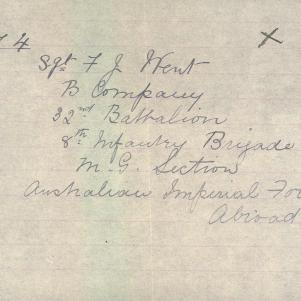 4
Sgt F J Went
B Company
32nd Battalion
8th Infantry Brigade
M. G. Section
Australian Imperial
Abroad